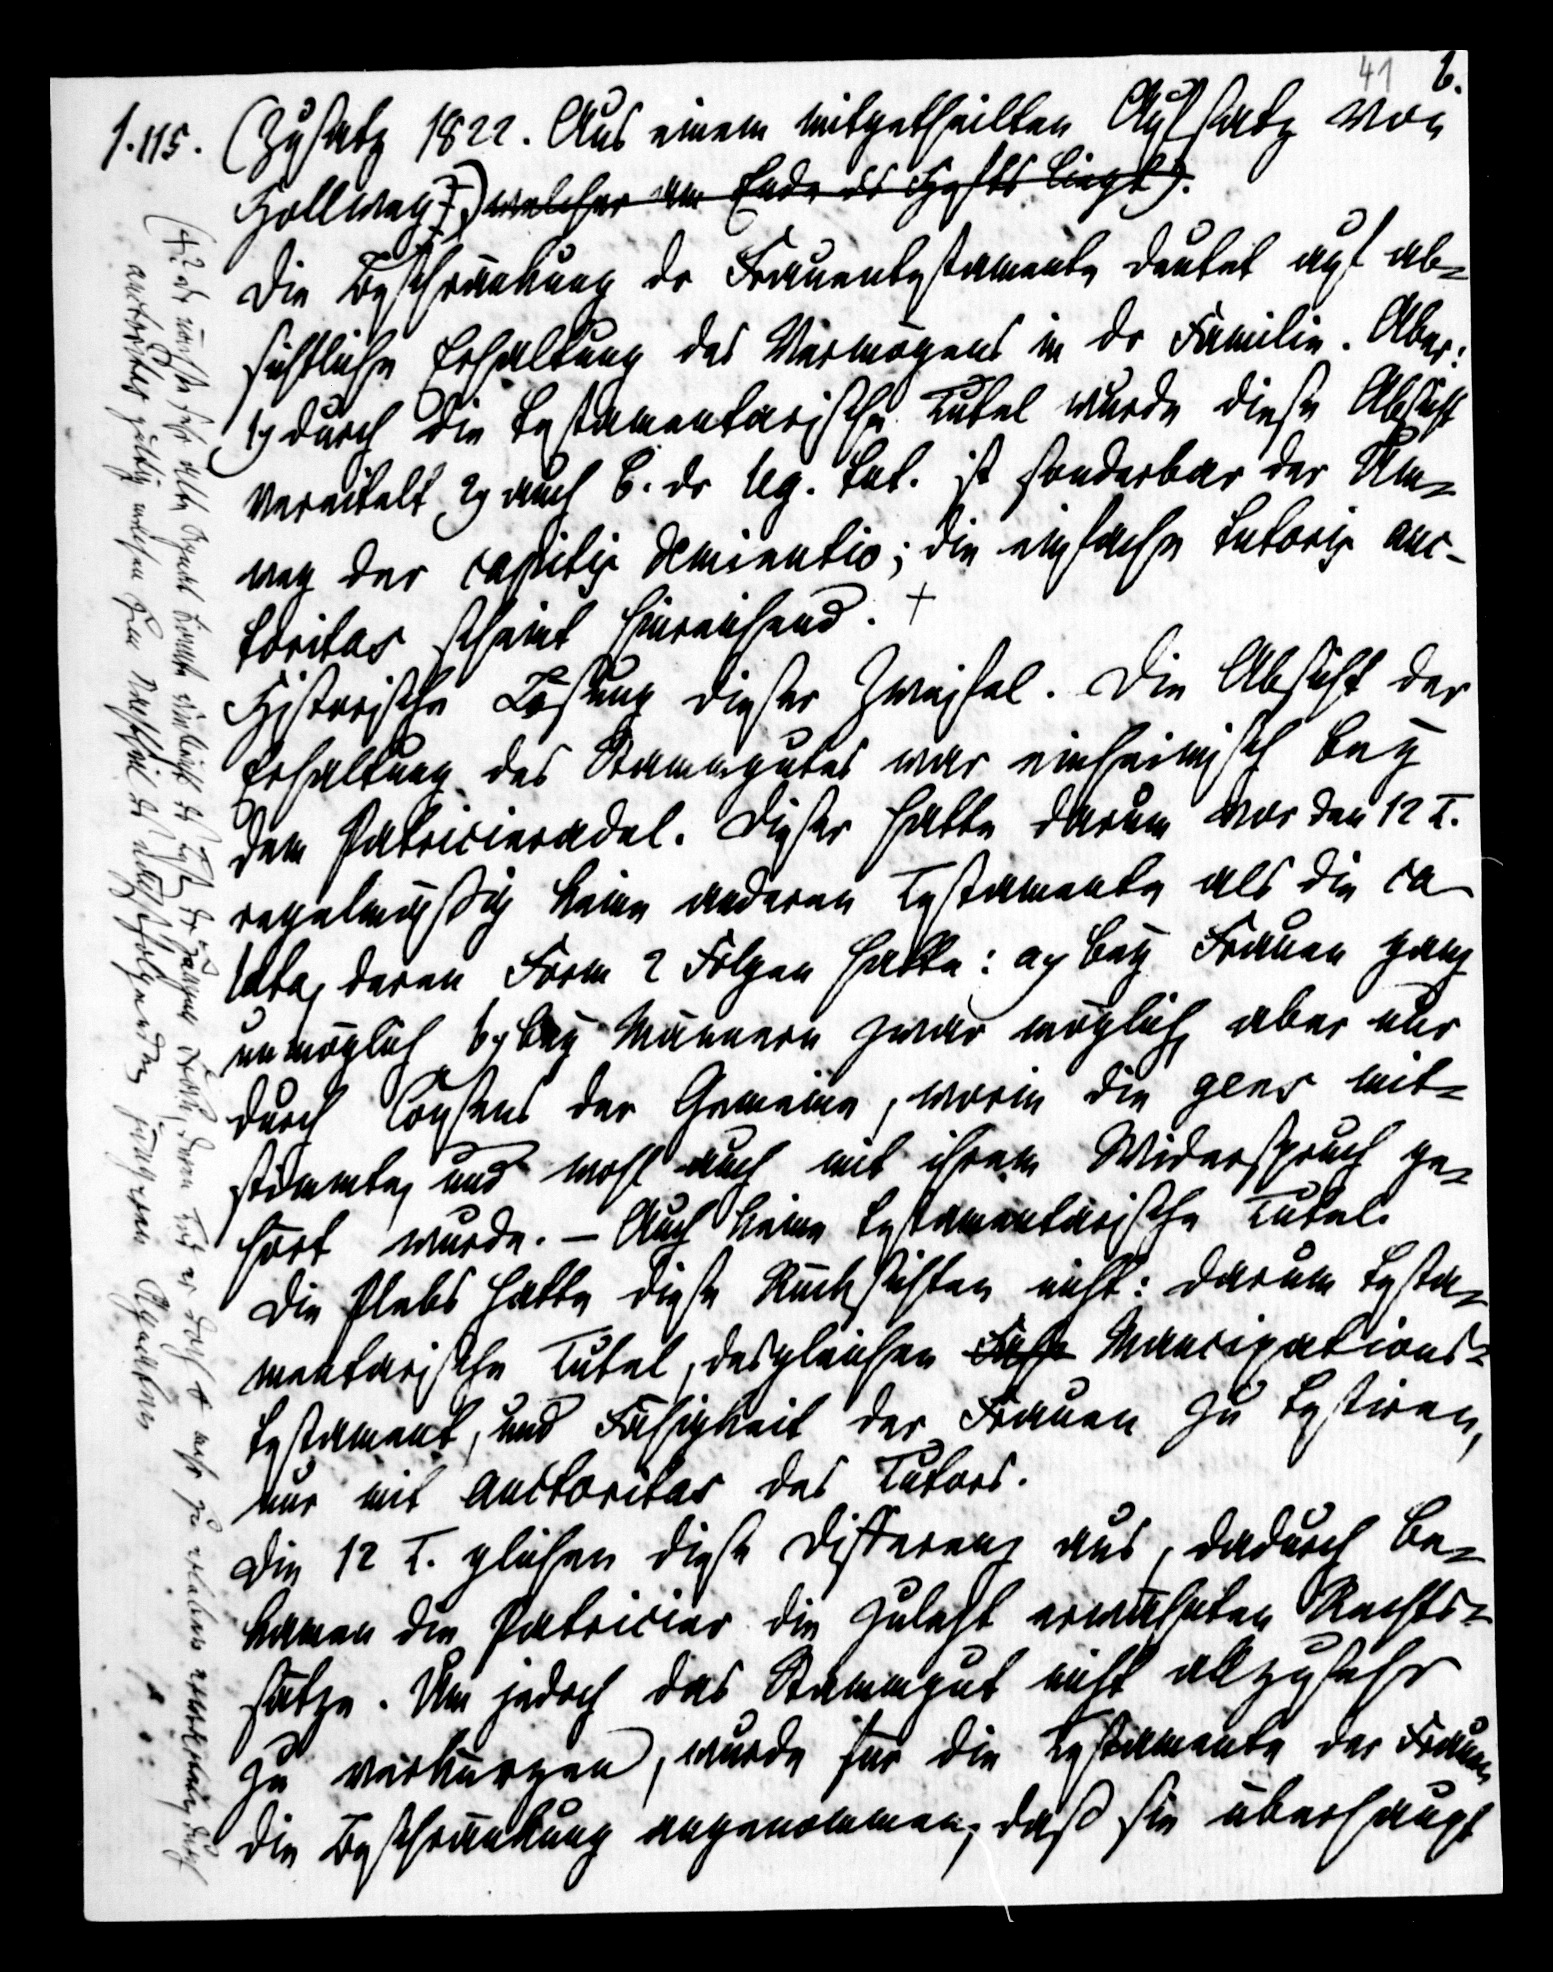 41 6.
§. 115. (Zusatz 1822. Aus einem mitgetheilten Aufsatz von
Hollweg) welcher am Ende des Hefts liegt).
Die Beschränkung der Frauentestamente deutet auf ab-
sichtliche Erhaltung des Vermögens in der Familie. Aber:
1) durch die testamentarische Tutel wurde diese Absicht
vereitelt 2) auch b. der leg. tut. ist sonderbar der Um-
weg der capitis deminutio; die einfache tutoris auc-
toritas scheint hinreichend. +
Historische Lösung dieser Zweifel. Die Absicht der
Erhaltung des Stammgutes war einheimisch bey
dem Patricieradel. Dieser hatte darum vor den 12 T.
regelmäßig keine anderen Testamente als die ca
lata, deren Form 2 Folgen hatte: a) bey Frauen ganz
unmöglich b) bey Männern zwar möglich, aber nur
durch Consens der Gemeine, worin die gens mit-
stimmte, und wohl auch mit ihrem Widerspruch ge-
hört wurde. – Auch keine testamentarische Tutel.
Die Plebs hatte diese Rücksichten nicht: darum testa-
mentarische Tutel, desgleichen Mancipations-
testament, und Fähigkeit der Frauen zu testiren,
nur mit auctoritas des Tutors.
Die 12 T. glichen diese Differenz aus, dadurch be-
kamen die Patricier die zuletzt erwähnten Rechts-
sätze. Um jedoch das Stammgut nicht allzusehr
zu verkürzen, wurde für die Testamente der Frauen
die Beschränkung angenommen, daß sie überhaupt